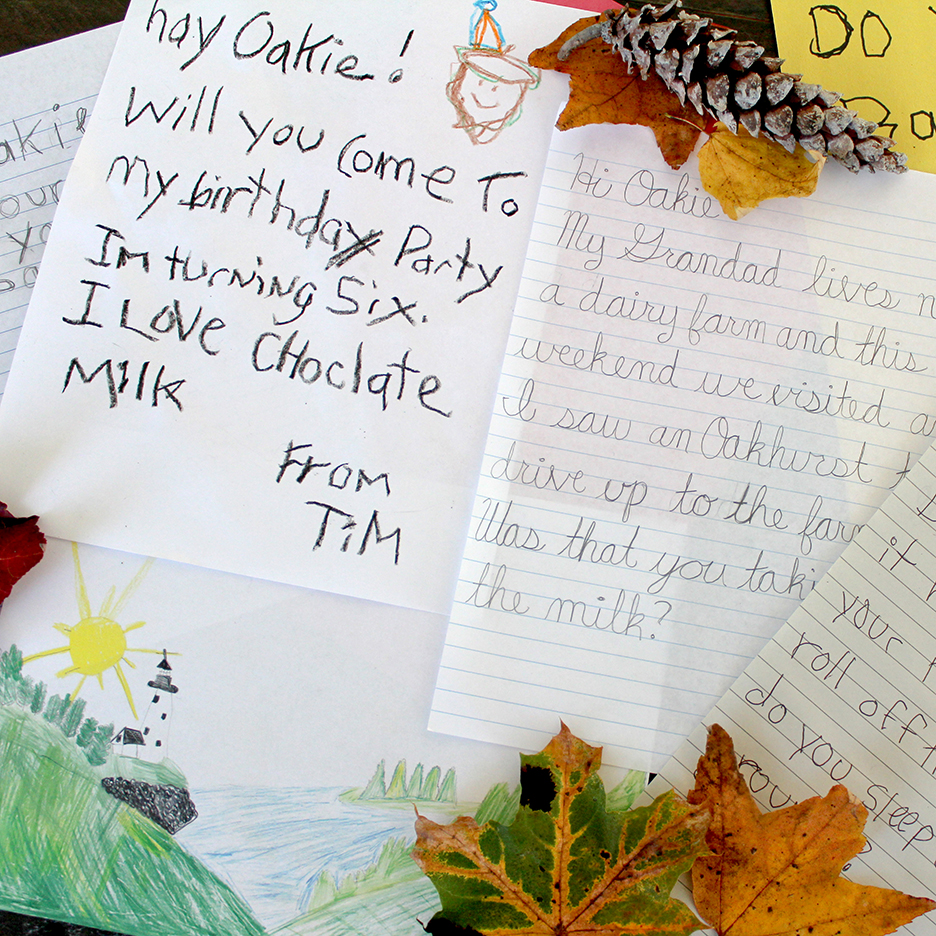 hay Oakie!
Will you Come To
My birthday Party
Im turning Six.
I LOVE CHoclate
Milk
From
TiM
Hi Oakie
My Grandad lives
a dairy farm and this
weekend we visited
I saw an Oakhurst
drive up to the farm
Was that you
the milk?
DO
it
your
roll off
do you sleep